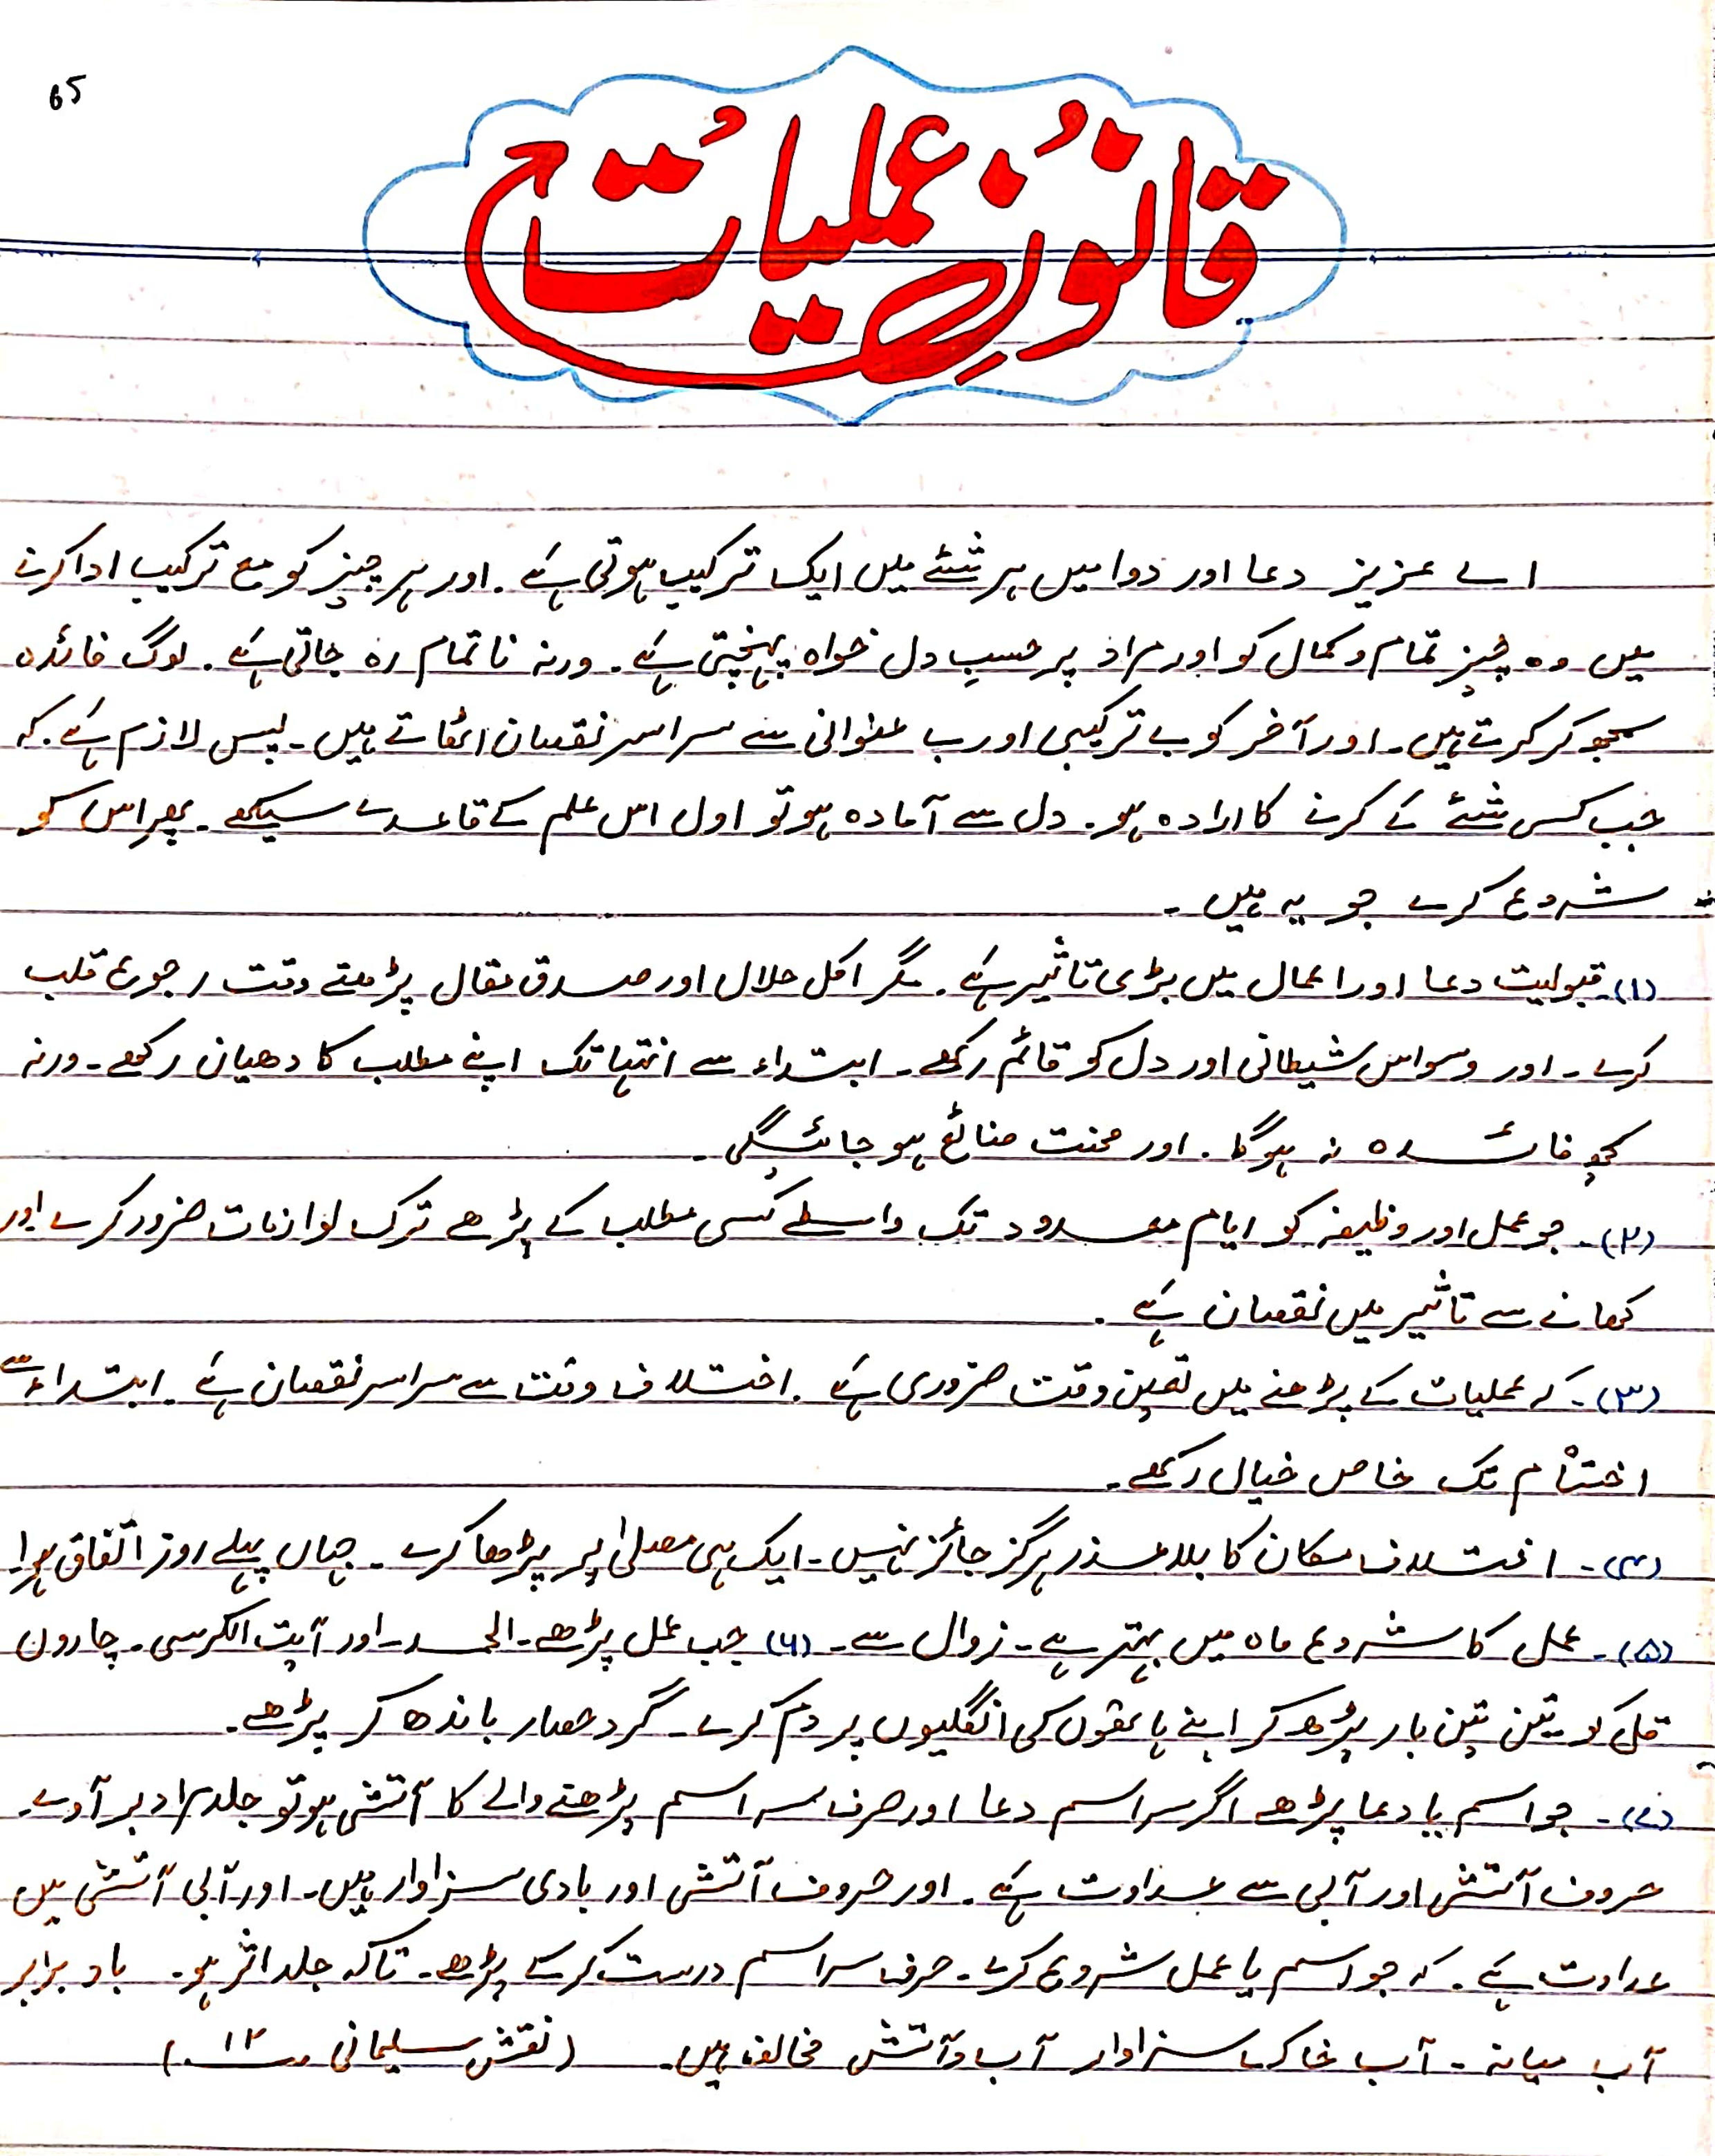 65
قانونِ عملیات
اے عزیز دعا اور دوا میں ہر شئے میں ایک ترکیب ہوتی ہے۔ اور ہر چیز کو مع ترکیب ادا کرنے
میں وہ چیز تمام و کمال کو اور مراد پر حسبِ دل خواہ پہنچتی ہے۔ ورنہ نا تمام رہ جاتی ہے۔ لوگ فائدہ
سمجھ کر کرتے ہیں۔ اور آخر کو بے ترکیبی اور بے عنوانی سے سراسر نقصان اٹھاتے ہیں۔ پس لازم ہے۔ کہ
جب کسی شئے کے کرنے کا ارادہ ہو۔ دل سے آمادہ ہو تو اول اس علم کے قاعدے سیکھے۔ پھر اس کو
شروع کرے جو یہ ہیں۔
(۱)۔ قبولیت دعا اور اعمال میں بڑی تاثیر ہے۔ مگر اکل حلال اور صدق مقال پڑھتے وقت رجوع قلب
کرے۔ اور وسواس شیطانی اور دل کو قائم رکھے۔ ابتداء سے انتہا تک اپنے مطلب کا دھیان رکھے۔ ورنہ
کچھ فائدہ نہ ہوگا۔ اور محنت ضائع ہو جائیگی۔
(۲)۔ جو عمل اور وظیفہ کو ایام معدود تک واسطے کسی مطلب کے پڑھے ترک لوازمات ضرور کرے اور
کھانے سے تاثیر میں نقصان ہے۔
(۳)۔ کہ عملیات کے پڑھنے میں تعین وقت ضروری ہے۔ اختلاف وقت سے سراسر نقصان ہے۔ ابتداء سے
اختتام تک خاص خیال رکھے۔
(۴)۔ اختلاف مکان کا بلا عذر ہرگز جائز نہیں۔ ایک ہی مصلیٰ پر پڑھا کرے۔ جہاں پہلے روز اتفاق ہوا۔
(۵)۔ عمل کا شروع ماہ میں بہتر ہے۔ زوال سے۔ (۶) جب عمل پڑھے۔ الحمد۔ اور آیت الکرسی۔ چاروں
قل کو تین تین بار پڑھ کر اپنے ہاتھوں کی انگلیوں پر دم کرے۔ گرد حصار باندھ کر پڑھے۔
(۷)۔ جو اسم یا دعا پڑھے اگر سر اسم دعا اور حرف سر اسم پڑھنے والے کا آتشی ہو تو جلد مراد بر آوے۔
حروف آتشی اور آبی سے عداوت ہے۔ اور حروف آتشی اور بادی سزاوار ہیں۔ اور آبی آتشی میں
عداوت ہے۔ کہ جو اسم یا عمل شروع کرے۔ حرف سر اسم درست کر کے پڑھے۔ تاکہ جلد اثر ہو۔ باد برابر
آب میانہ۔ آب خاک سزاوار آب و آتش مخالف ہیں۔ (نقش سلیمانی ۱۲)